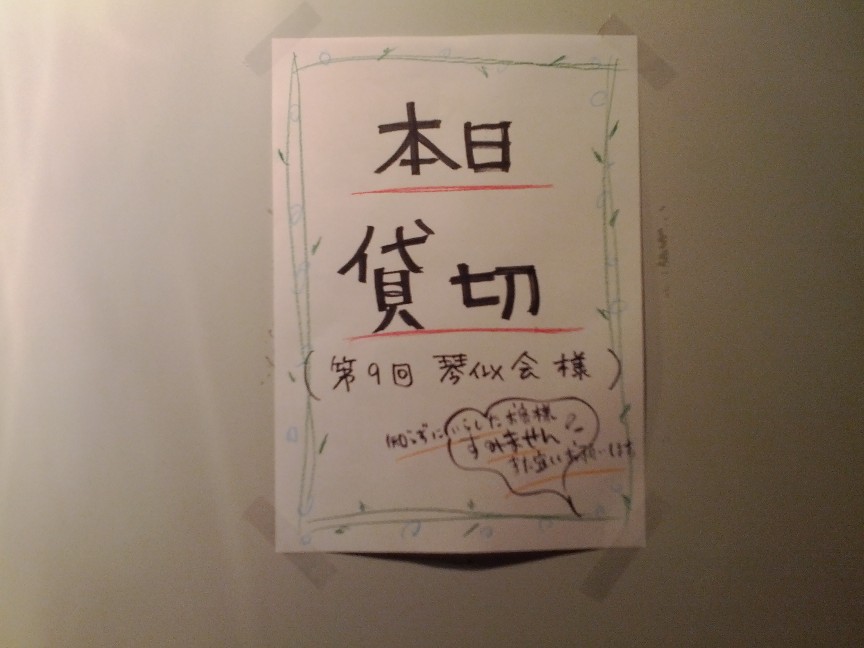 本日
貸切
(第9回 琴似会様)
知らずにいらしたお客様
すみません
また宜しくお願いします